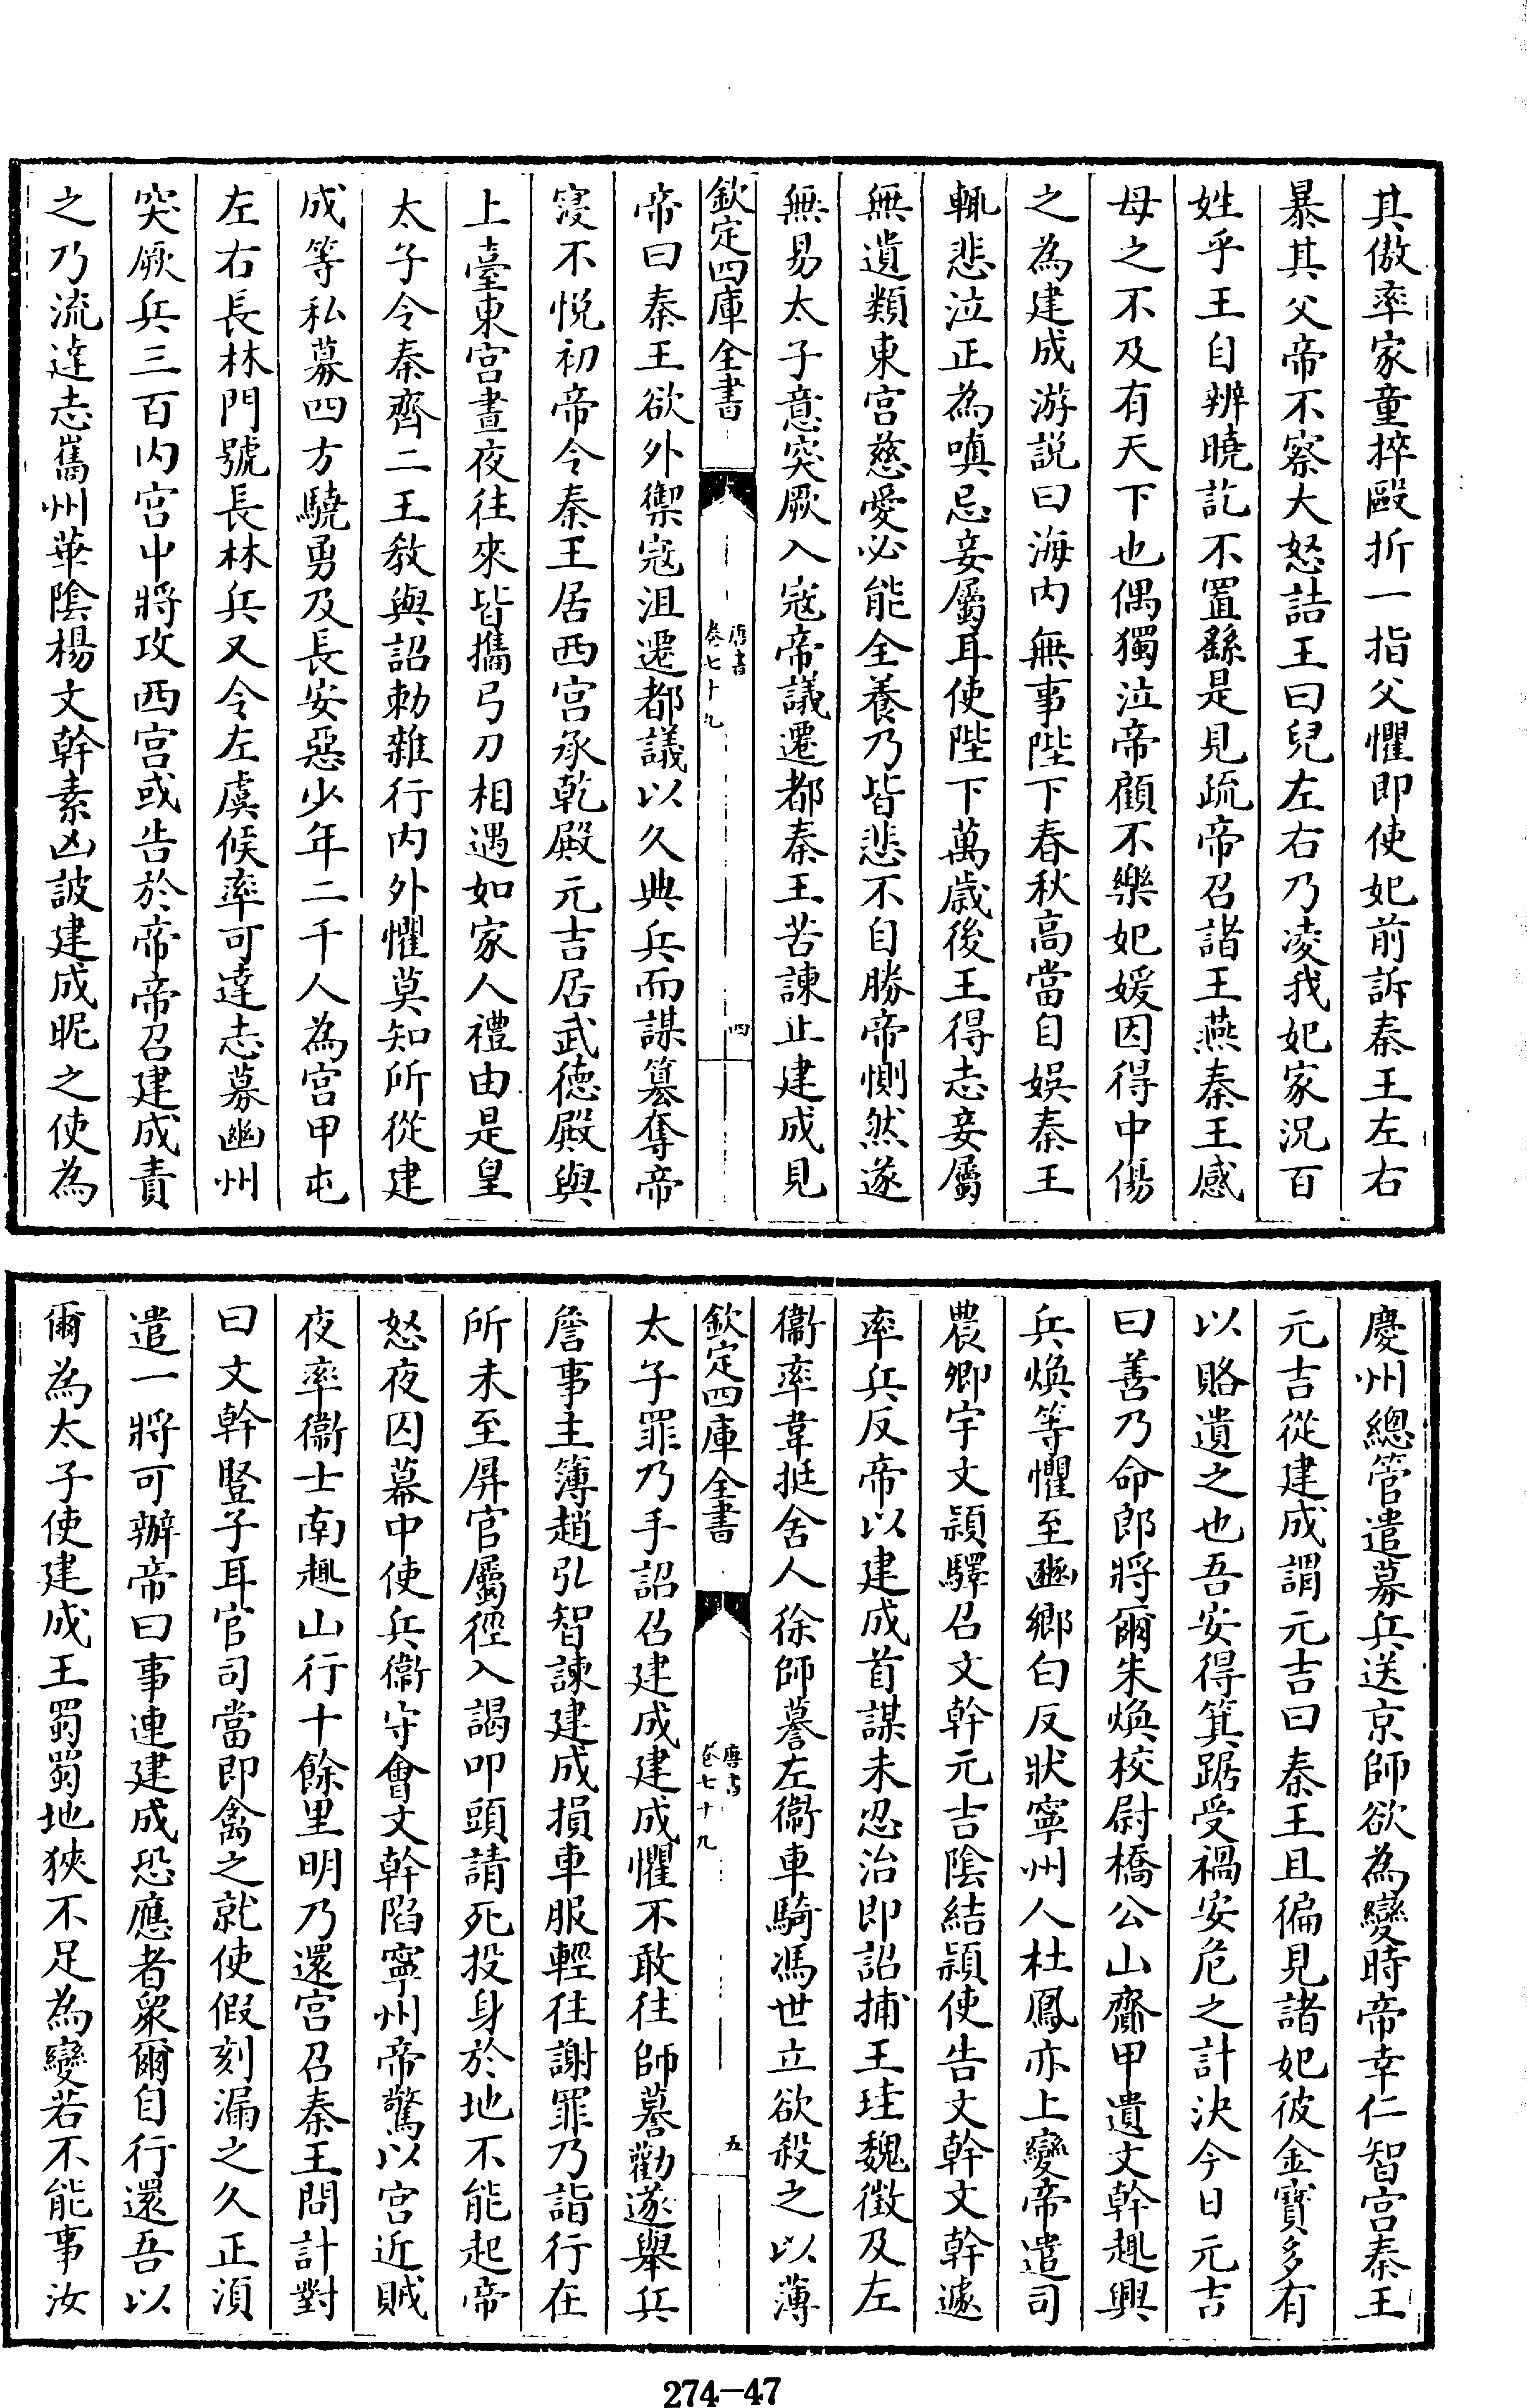 其傲率家童捽毆折一指父懼即使妃前訴秦王左右
暴其父帝不察大怒詰王曰兒左右乃凌我妃家況百
姓乎王自辨曉訖不置繇是見疏帝召諸王燕秦王感
母之不及有天下也偶獨泣帝顧不樂妃媛因得中傷
之為建成游説曰海内無事陛下春秋高當自娱秦王
輒悲泣正為嗔忌妾屬耳使陛下萬歲後王得志妾屬
無遺類東宫慈愛必能全養乃皆悲不自勝帝惻然遂
無易太子意突厥入寇帝議遷都秦王苦諫止建成見
欽定四庫全書
唐書
卷七十九
四
帝曰秦王欲外禦寇沮遷都議以久典兵而謀簒奪帝
寖不悦初帝令秦王居西宫承乾殿元吉居武德殿與
上臺東宫晝夜往來皆攜弓刀相遇如家人禮由是皇
太子令秦齊二王教與詔勅雜行内外懼莫知所從建
成等私募四方驍勇及長安惡少年二千人為宫甲屯
左右長林門號長林兵又令左虞候率可達志募幽州
突厥兵三百内宫中將攻西宫或告於帝帝召建成責
之乃流達志巂州華陰楊文幹素凶詖建成昵之使為
慶州總管遣募兵送京師欲為變時帝幸仁智宫秦王
元吉從建成謂元吉曰秦王且徧見諸妃彼金寶多有
以賂遺之也吾安得箕踞受禍安危之計決今日元吉
曰善乃命郎將爾朱煥校尉橋公山齎甲遺文幹趣興
兵煥等懼至豳鄉白反狀寧州人杜鳳亦上變帝遣司
農卿宇文頴驛召文幹元吉陰結頴使告文幹文幹遽
率兵反帝以建成首謀未忍治即詔捕王珪魏徵及左
衞率韋挺舍人徐師謩左衞車騎馮世立欲殺之以薄
欽定四庫全書
唐書
卷七十九
五
太子罪乃手詔召建成建成懼不敢往師謩勸遂舉兵
詹事主簿趙弘智諫建成損車服輕往謝罪乃詣行在
所未至屏官屬徑入謁叩頭請死投身於地不能起帝
怒夜囚幕中使兵衞守會文幹陷寧州帝驚以宫近賊
夜率衞士南趣山行十餘里明乃還宫召秦王問計對
曰文幹豎子耳官司當即禽之就使假刻漏之久正須
遣一將可辦帝曰事連建成恐應者衆爾自行還吾以
爾為太子使建成王蜀蜀地狹不足為變若不能事汝
274-47